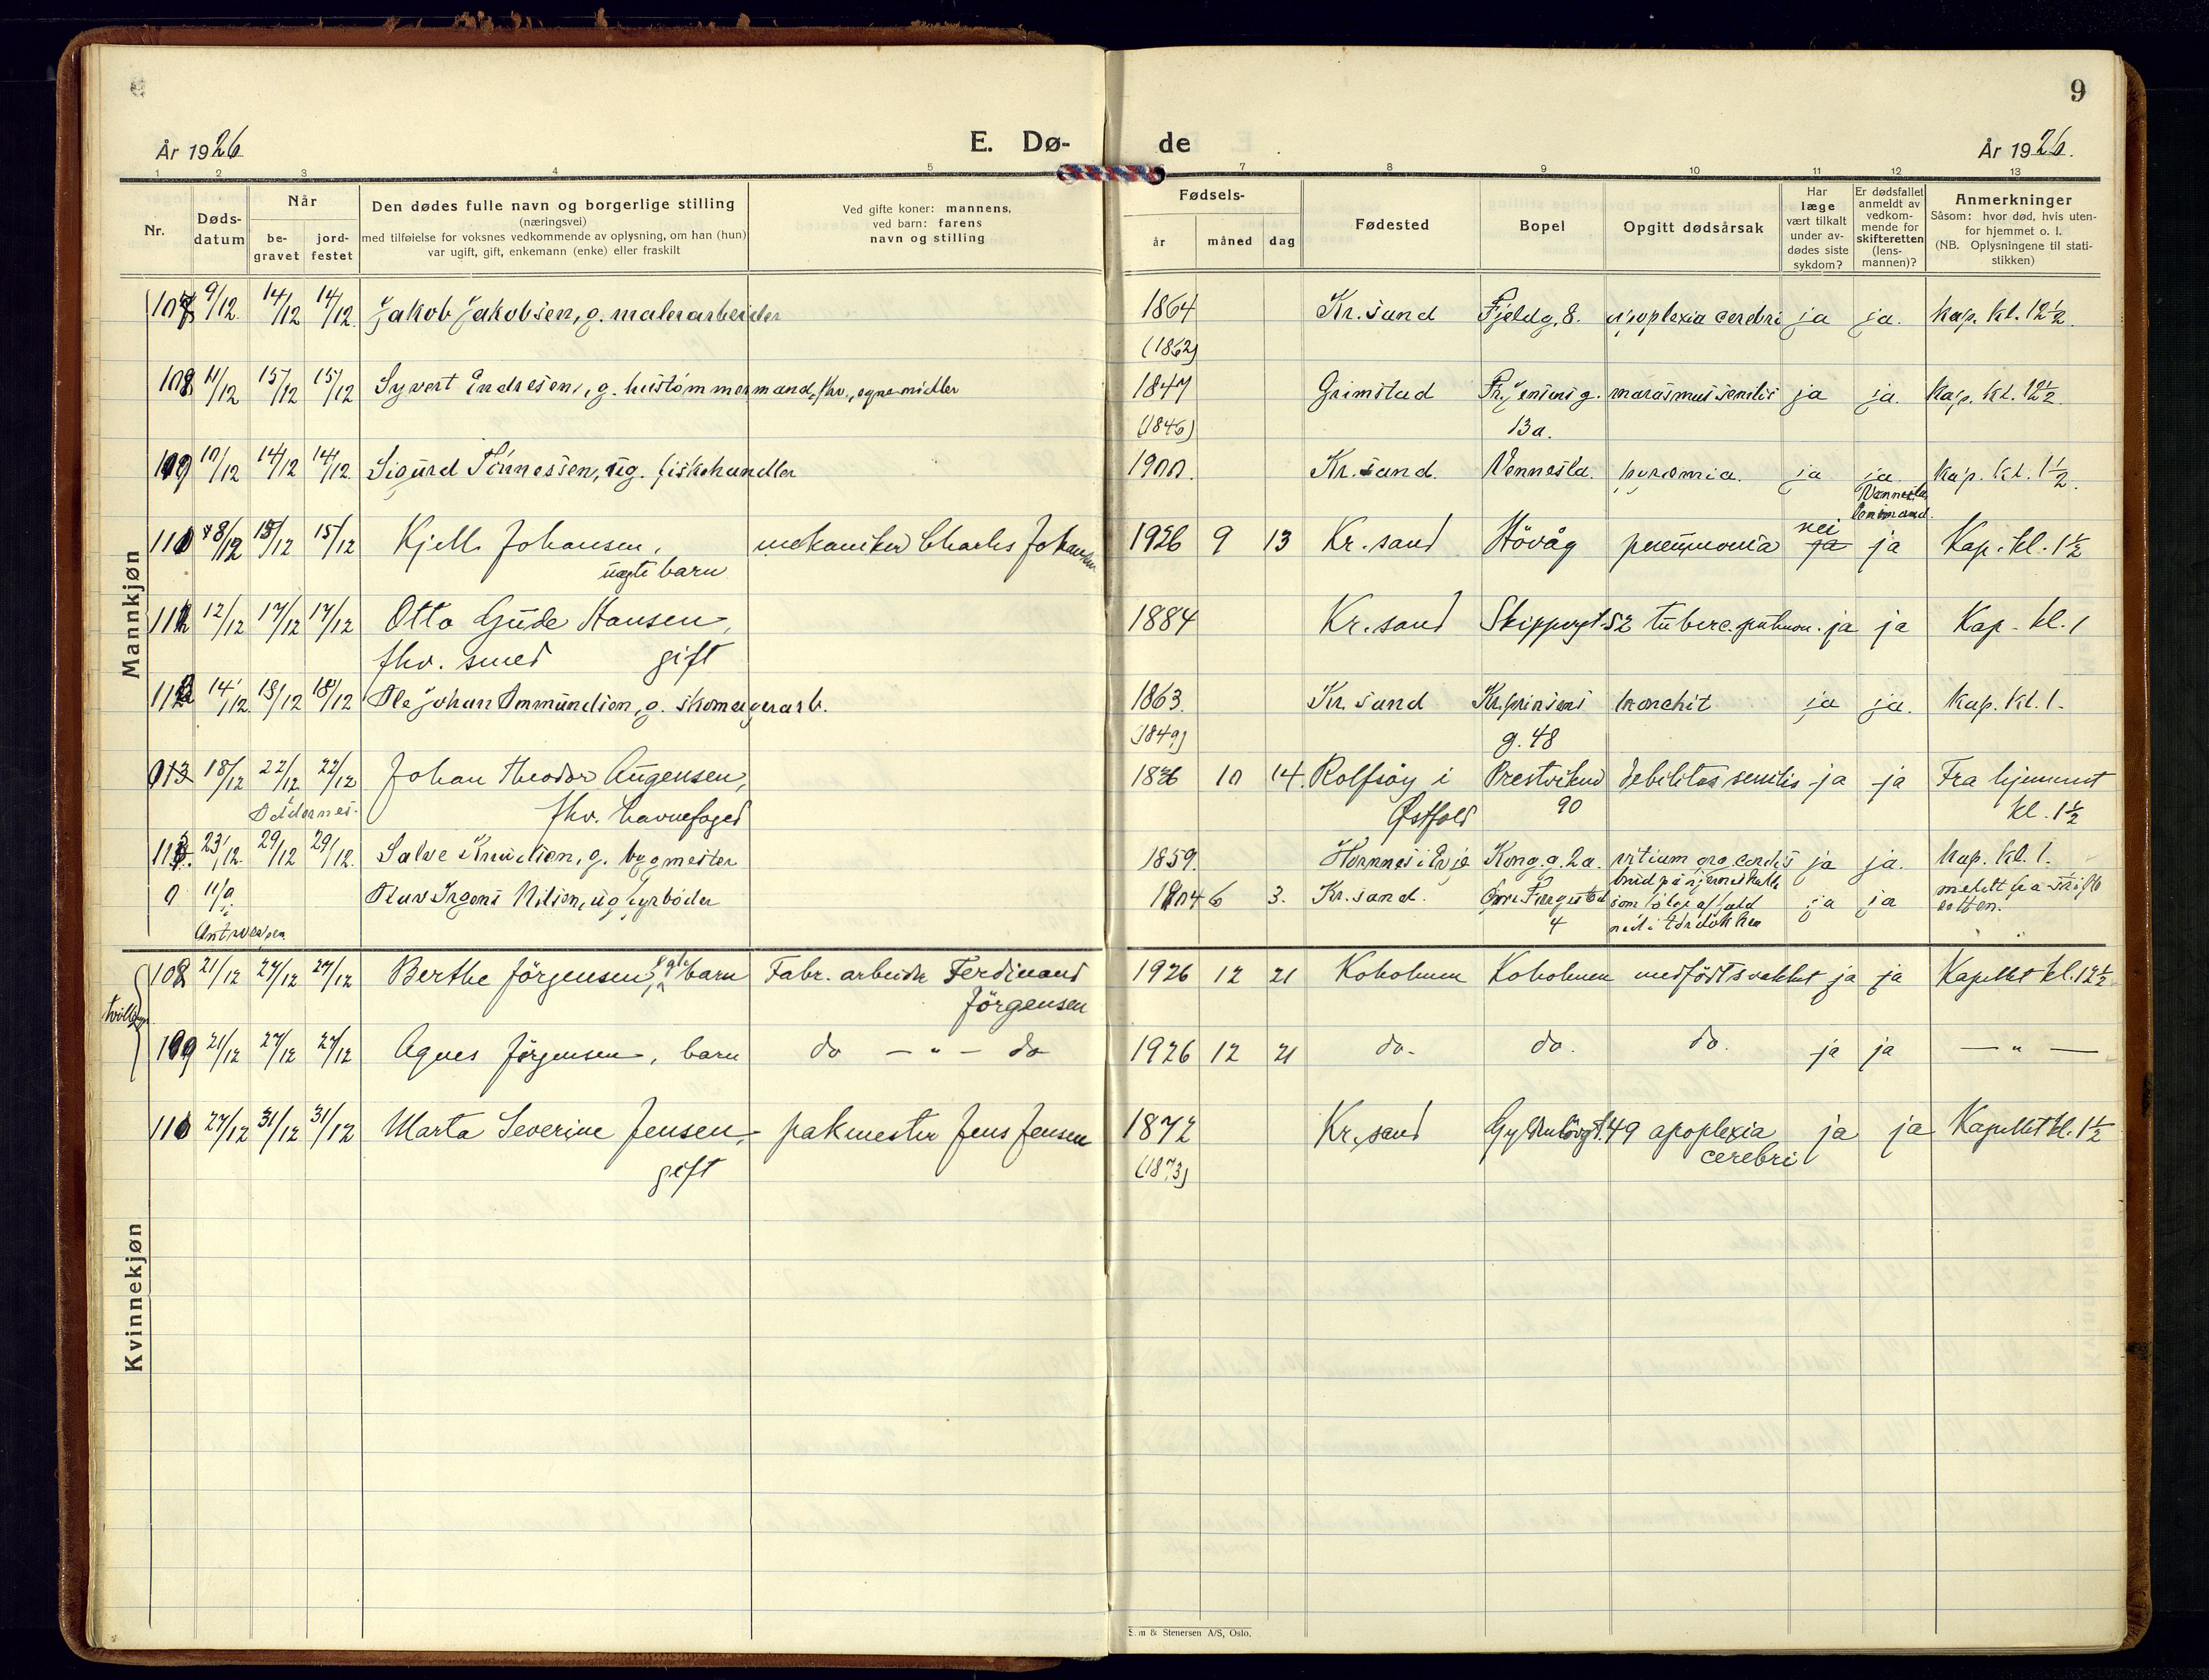 9
År 1926
E. Dø-
de
År 1926.
1 2 3 4 5 6 7 8 9 10 11 12 13
Nr.
Døds-
datum
Når
be-
gravet
jord-
festet
Den dødes fulle navn og borgerlige stilling
(næringsvei)
med tilføielse for voksnes vedkommende av oplysning, om han (hun)
var ugift, gift, enkemann (enke) eller fraskilt
Ved gifte koner: mannens,
ved barn: farens
navn og stilling
Fødsels-
år måned dag
Fødested
Bopel
Opgitt dødsårsak
Har
læge
vært tilkalt
under av-
dødes siste
sykdom?
Er dødsfallet
anmeldt av
vedkom-
mende for
skifteretten
(lens-
mannen)?
Anmerkninger
Såsom: hvor død, hvis uten-
for hjemmet o. l.
(NB. Oplysningene til stati-
stikken)
Mannkjøn
107 9/12. 14/12 14/12. Jakob Jakobsen, g. malerarbeider 1864 Kr. sand Fjeldg. 8. apoplexia cerebri ja ja. Kap. kl. 12½.
(1862)
108 11/12 15/12 15/12 Syvert Endresen, g. hustømmermand, fhv., egne midler 1847 Grimstad Fr. Jensens g. marasmus senilis ja ja. Kap. kl. 12½.
(1846) 13a.
109 10/12 14/12 14/12. Sigurd Tönnessen, ug. fiskehandler 1900. Kr. sand. Vennesla. pyæmia. ja ja Kap. kl. 1½.
Vennesla
lensmand.
110 8/12 15/12 15/12 Kjell Johansen, mekaniker Charles Johansen 1926 9 13 Kr. sand Hövåg pneumonia ja ja Kap. kl. 1½
uegte barn nei
111 12/12 17/12 17/12 Otto Gude Hansen, 1884 Kr. sand Skippergt. 52 tuberc. pulmon. ja ja Kap. kl. 1
fhv. smed gift
112 14/12. 18/12 18/12 Ole Johan Ommundsen, g. skomagerarb. 1863. Kr. sand Kr. prinsens bronchit ja ja. Kap. kl. 1.
(1849) g. 48
013 18/12 22/12 22/12 Johan Theodor Augensen, 1836 10 14. Rolfsøy i Prestvikvei debilitas senilis ja ja Fra hjemmet
Oddernes. fhv. havnefoged Østfold 90 kl. 1½
113. 23/12. 29/12 29/12. Salve Knudsen, g. bygmester 1859. Hornnes i Evje Kong. g. 2a. vitium org. cordis ja ja. Kap. kl. 1.
0 11/9 Olav Irgens Nilsen, ug fyrböder 1904 6 3. Kr. sand. 4 brud på hjerneskalle
som følge af fald
ned i tördokken ja ja meldt fra skifte
retten.
i
Antwerpen
Kvinnekjøn
tvillinger
108 21/12 27/12 27/12 Berthe Jörgensen, egte barn Fabr. arbeider Ferdinand 1926 12 21 Koholmen Koholmen medfödt svakhet ja ja Kapellet kl. 12½
Jörgensen
109 21/12 27/12 27/12 Agnes Jörgensen, barn do — " — do 1926 12 21 do. do. do. ja ja — " —
110 27/12 31/12 31/12 Marta Severine Jensen, pakmester Jens Jensen 1872 Kr. sand Gyldenlövgt. 49 apoplexia ja ja Kapellet kl. 1½
gift (1873) cerebri
Sem & Stenersen A/S, Oslo.